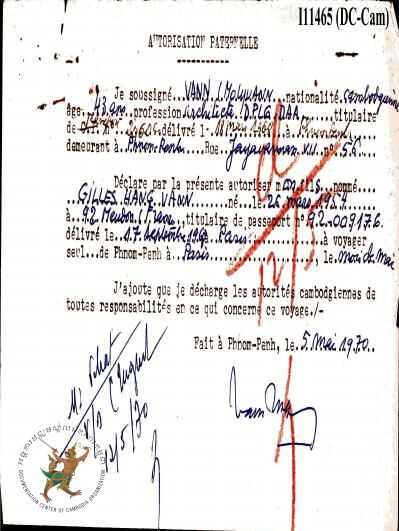 I11465 (DC-Cam)
AUTORISATION PATERNELLE
Je soussigné...VANN (MOLYVANN)..nationalité.cambodgienne
âge.43 ans.profession architecte (DPLG) DAA... titulaire
délivré l. Mai 1968 Phnom-Penh
demeurant à Phnom-Penh.. Rue. Jayavarman VII. n° 56..
Déclare par la présente autoriser mon fils...nommé....
GILLES HANG VANN... né..le 26 mars 1957
à 92 Meudon (France) titulaire de passeport n° 92-009176.
délivré le 17.septembre à Paris...... à voyager
seul...de Phnom-Penh à Paris........, le mois de Mai
J'ajoute que je décharge les autorités cambodgiennes de
toutes responsabilités en ce qui concerne ce voyage./-
Fait à Phnom-Penh, le. 5. Mai 1970..
12/5
5/70
DOCUMENTATION CENTER OF CAMBODIA ORGANIZATION